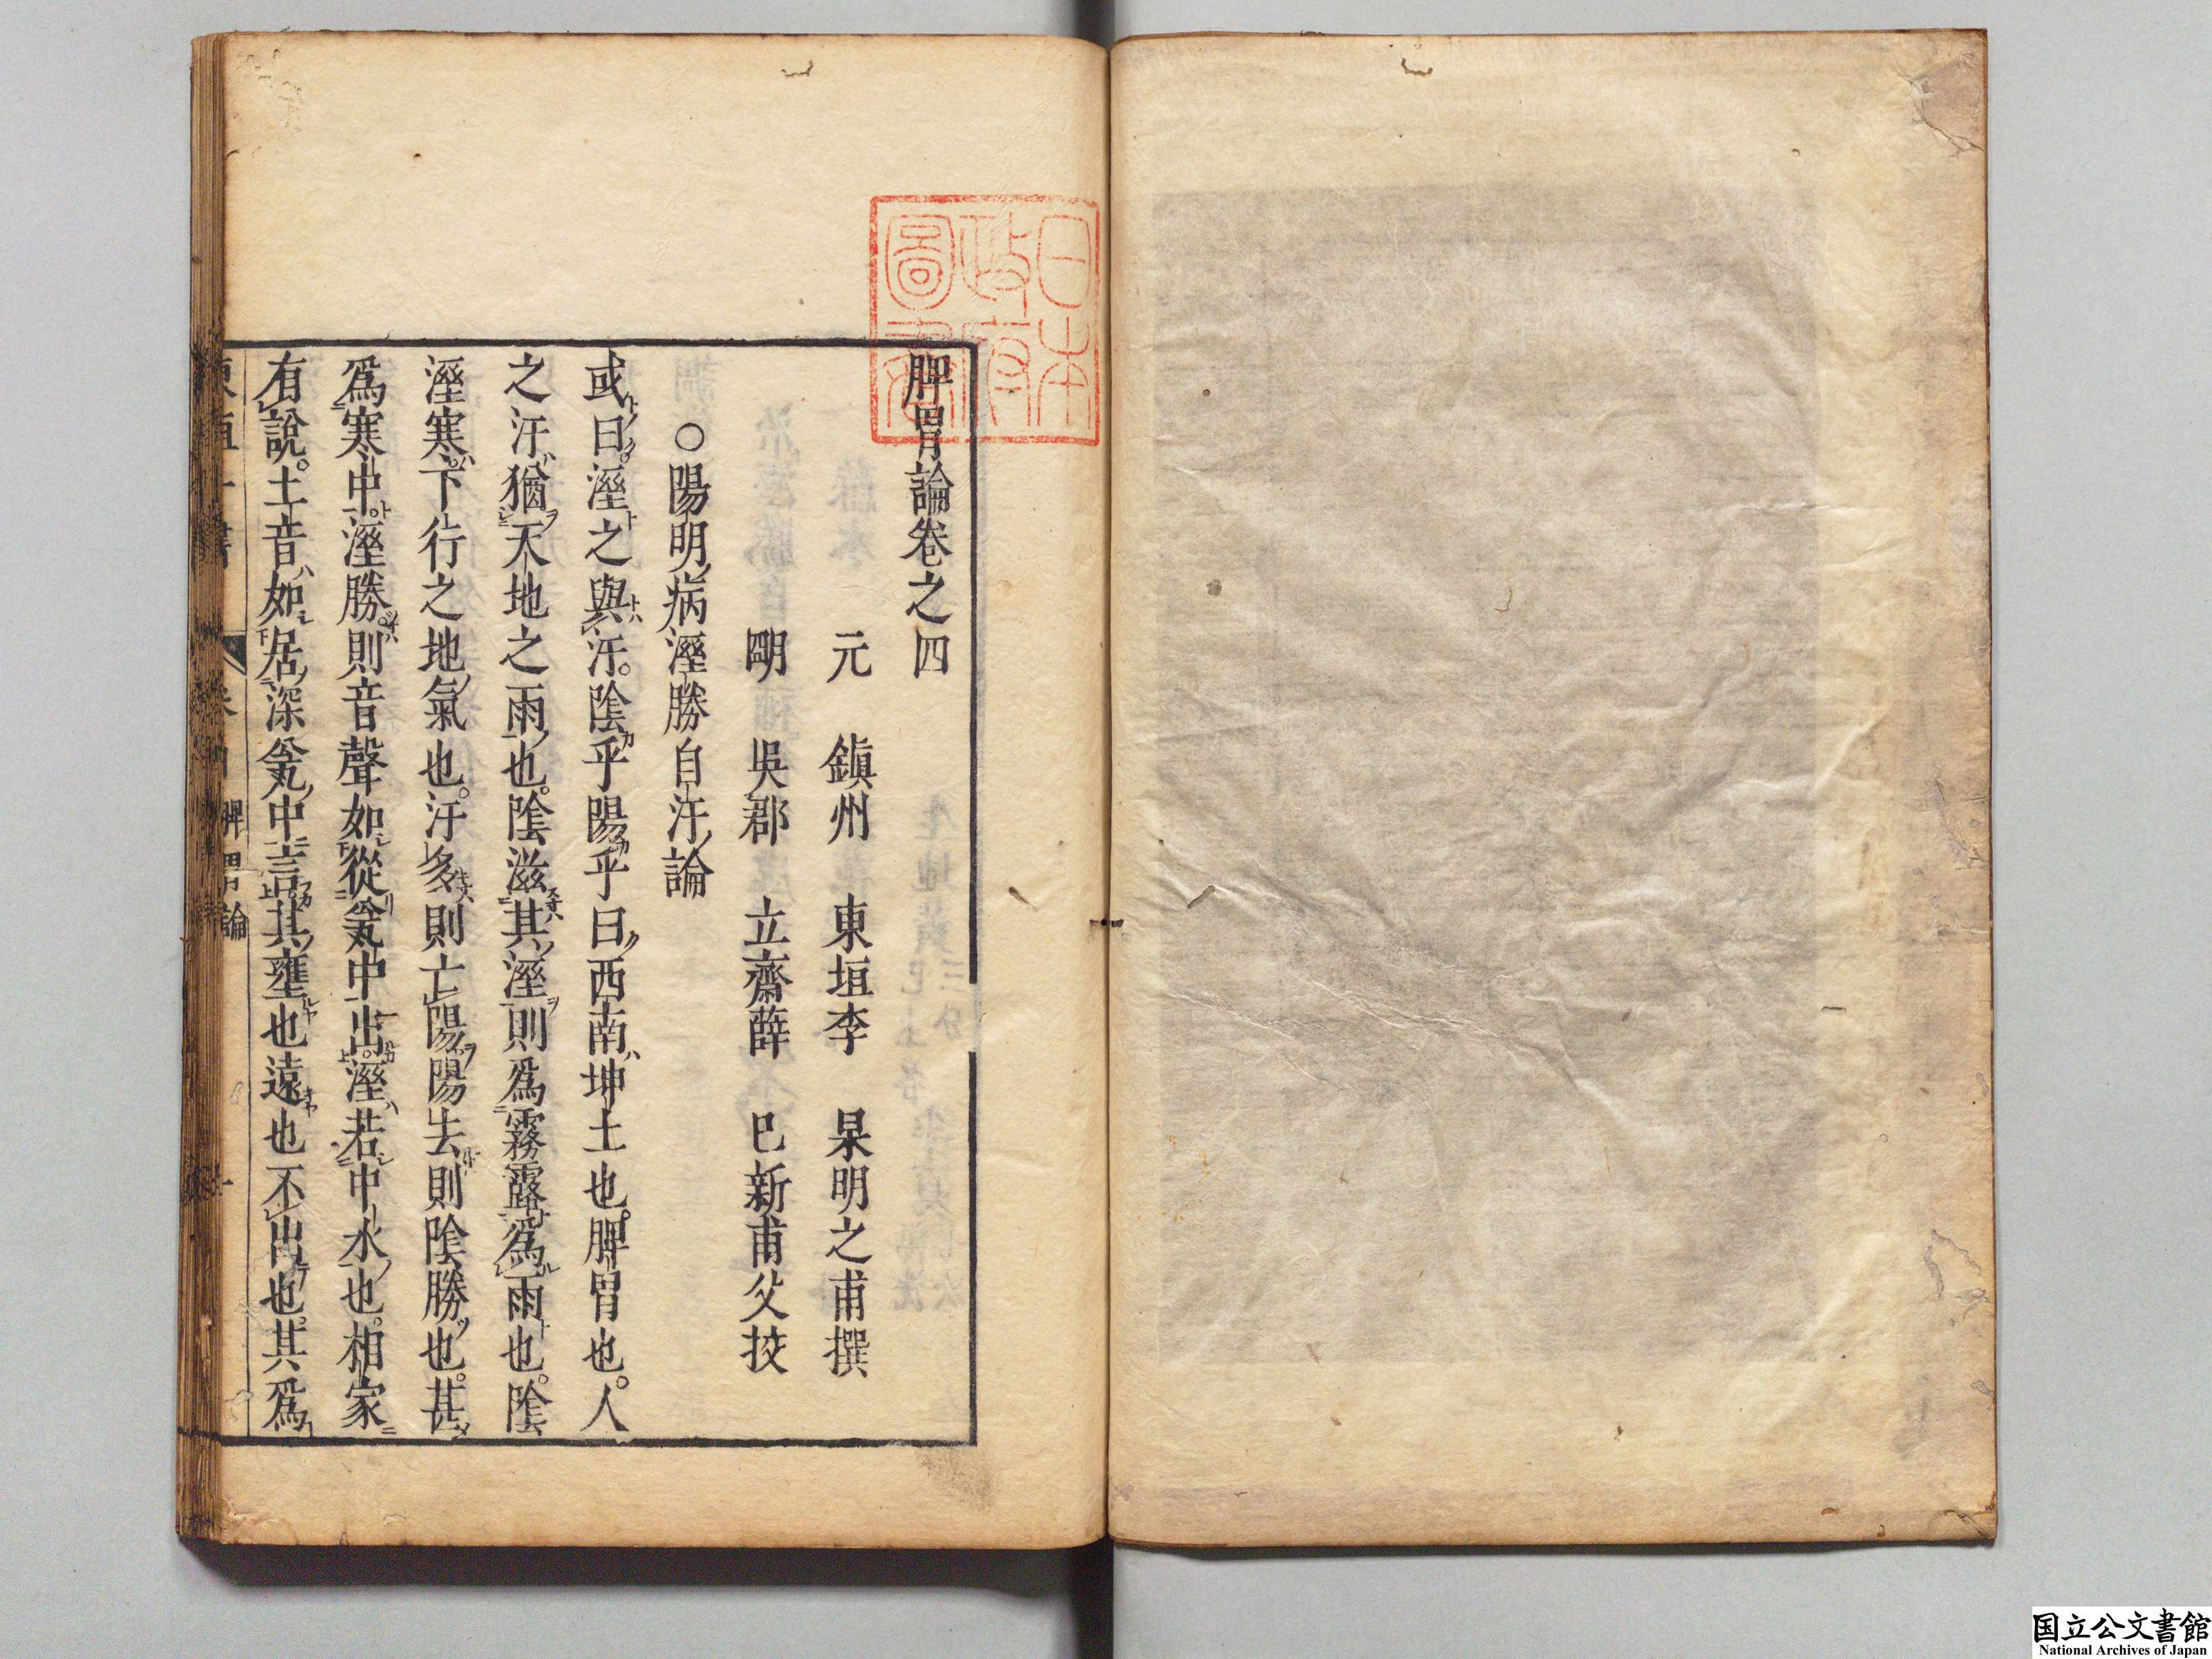 日本
政府
圖書
脾胃論卷之四
元 鎮州 東垣李 杲明之甫撰
明 吳郡 立齋薛 巳新甫父挍
○陽明病溼勝自汗論
或曰溼之與汗。陰乎陽乎曰西南坤土也。脾胃也。人
之汗猶天地之雨也。陰滋其溼則爲霧露爲雨也。陰
溼寒下行之地氣也。汗多則亡陽陽去則陰勝也。甚
爲寒中。溼勝則音聲如從瓮中出。溼若中水也。相家
有說。土音如居深瓮中言其壅也遠也不出也。其爲
脾胃論
国立公文書館
National Archives of Japan